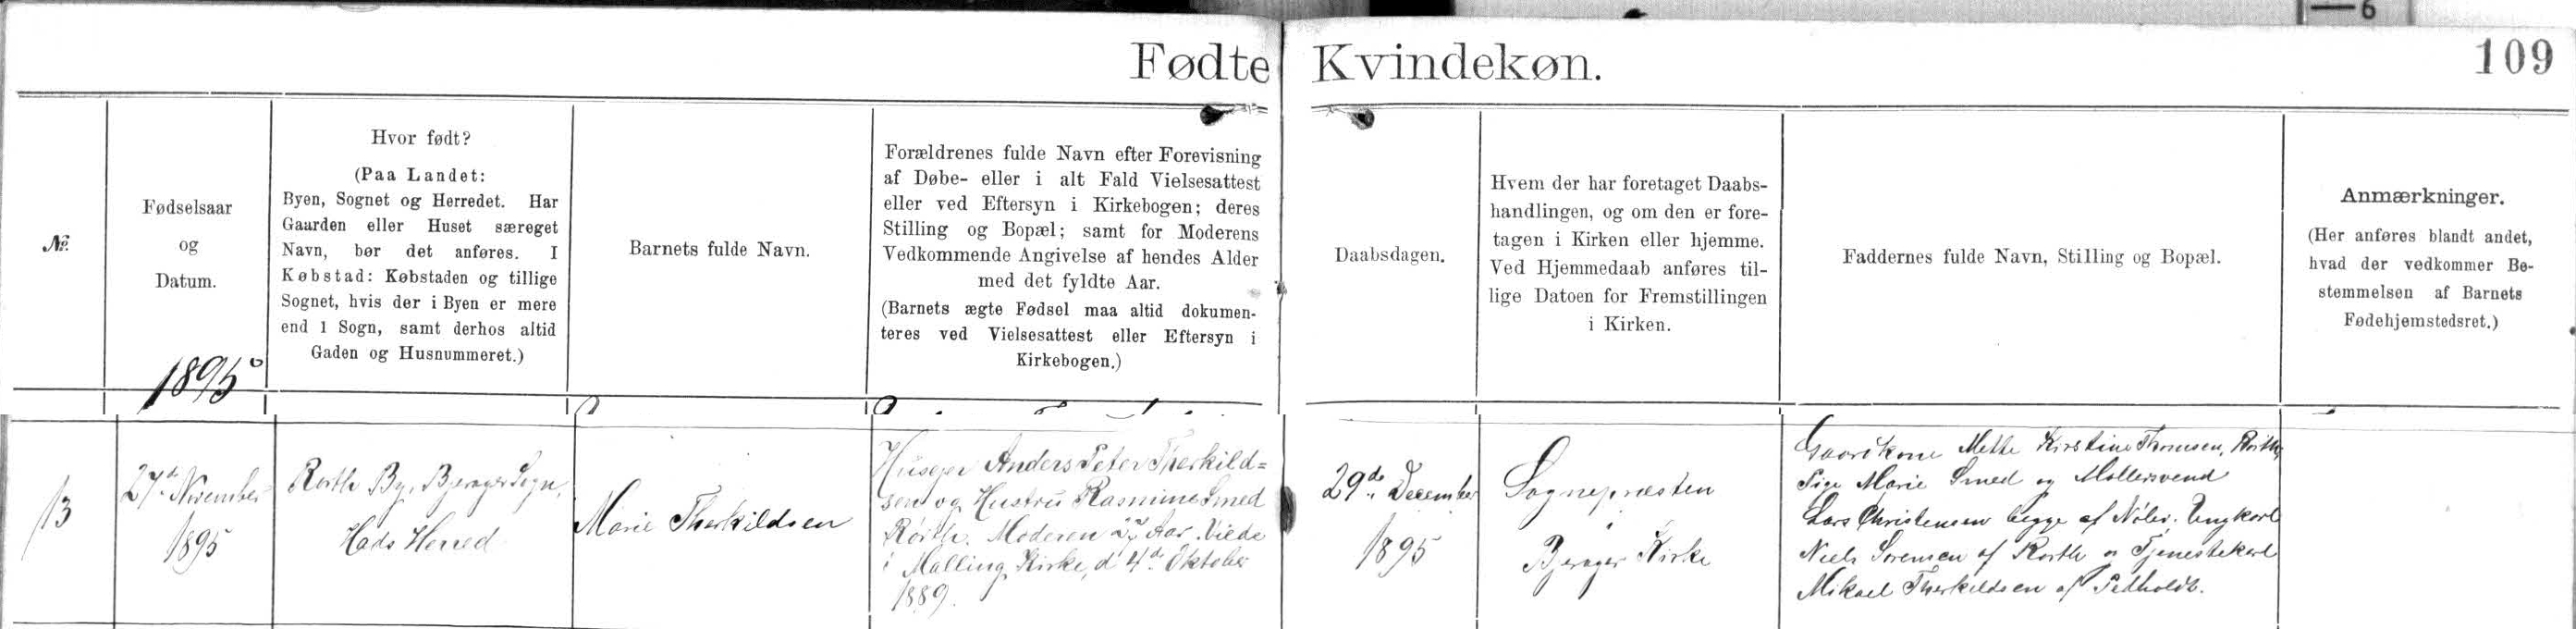 6
Fødte Kvindekøn.
109
№
Fødselsaar
og
Datum.
1895
Hvor født?
(Paa Landet:
Byen, Sognet og Herredet. Har
Gaarden eller Huset særeget
Navn, bør det anføres. I
Købstad: Købstaden og tillige
Sognet, hvis der i Byen er mere
end 1 Sogn, samt derhos altid
Gaden og Husnummeret.)
Barnets fulde Navn.
Forældrenes fulde Navn efter Forevisning
af Døbe- eller i alt Fald Vielsesattest
eller ved Eftersyn i Kirkebogen; deres
Stilling og Bopæl; samt for Moderens
Vedkommende Angivelse af hendes Alder
med det fyldte Aar.
(Barnets ægte Fødsel maa altid dokumen-
teres ved Vielsesattest eller Eftersyn i
Kirkebogen.)
Daabsdagen.
Hvem der har foretaget Daabs-
handlingen, og om den er fore-
tagen i Kirken eller hjemme.
Ved Hjemmedaab anføres til-
lige Datoen for Fremstillingen
i Kirken.
Faddernes fulde Navn, Stilling og Bopæl.
Anmærkninger.
(Her anføres blandt andet,
hvad der vedkommer Be-
stemmelsen af Barnets
Fødehjemstedsret.)
13
27de November
1895
Rørth By, Bjerager Sogn,
Hads Herred
Marie Therkildsen
Husejer Anders Peter Therkild=
sen og Hustru Rasmine Smed
Rørth. Moderen 27 Aar. Viede
i Malling Kirke, d 4de Oktober
1889.
29de December
1895
Sognepræsten
i
Bjerager Kirke
Gaardkone Mette Kirstine Thomsen, Rørth,
Pige Marie Smed og Møllersvend
Lars Christensen begge af Nølev. Ungkarl
Niels Sørensen af Rørth og Tjenestekarl
Mikael Therkildsen af Pedholdt.